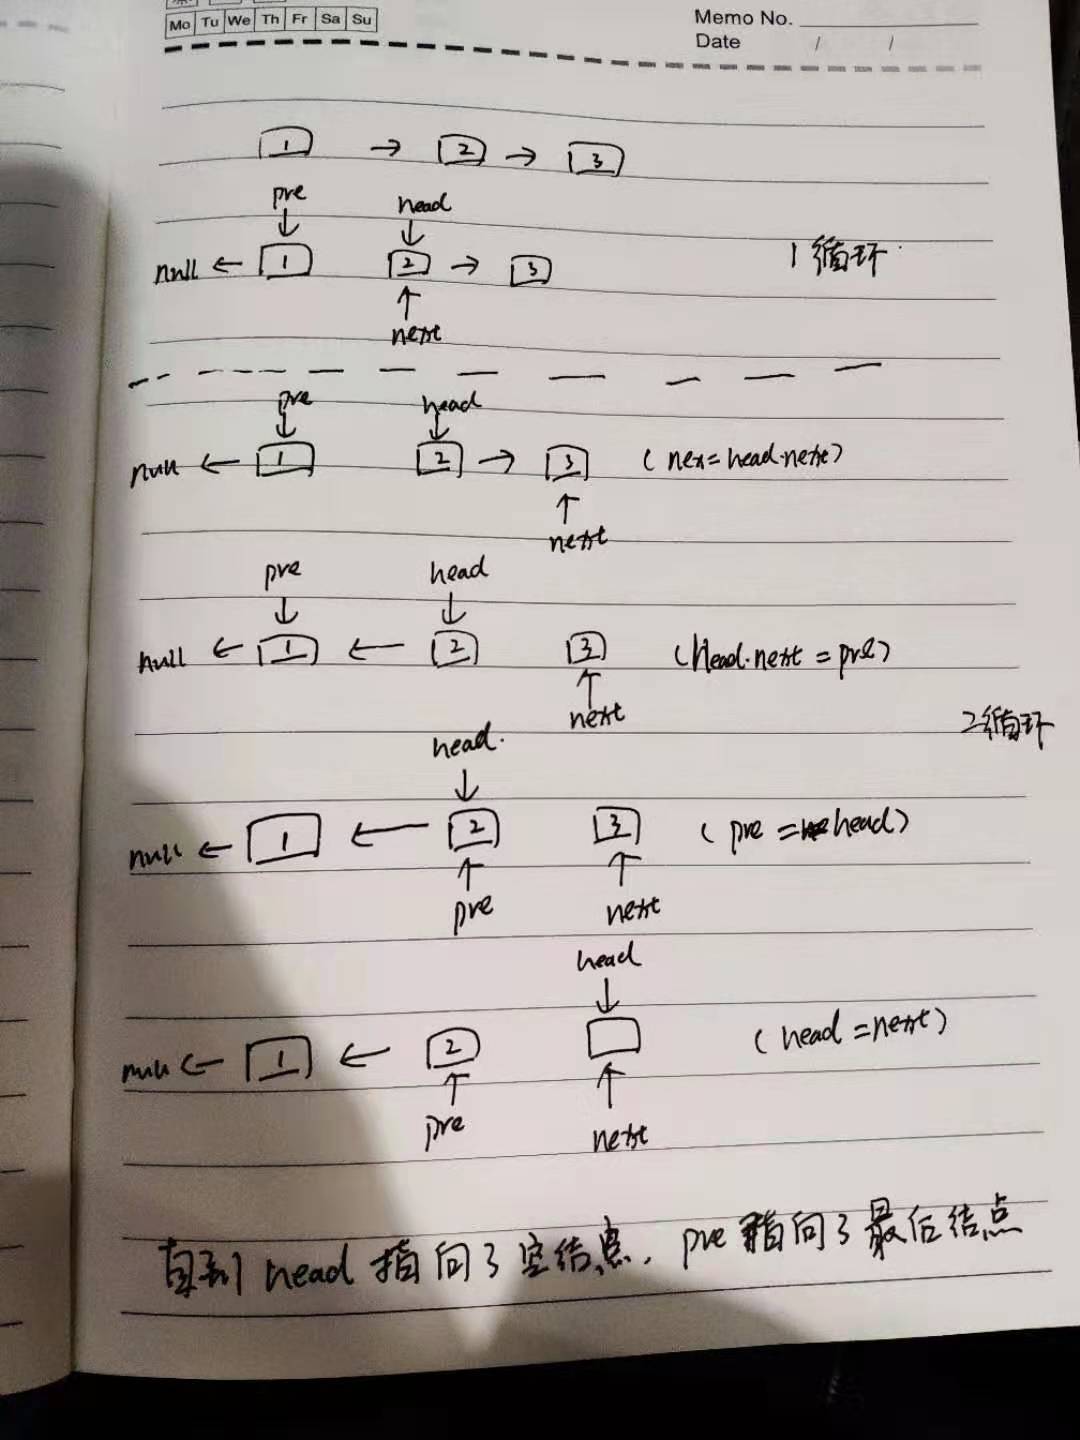 Mo Tu We Th Fr Sa Su
Memo No.
Date / /
1 → 2 → 3
pre head
null ← 1 2 → 3 1循环
next
pre head
null ← 1 2 → 3 (nex=head.next)
next
pre head
null ← 1 ← 2 3 (head.next=pre)
next
2循环
head
null ← 1 ← 2 3 (pre = head)
pre next
head
null ← 1 ← 2 (head=next)
pre next
直到head指向了空结点，pre指向了最后结点